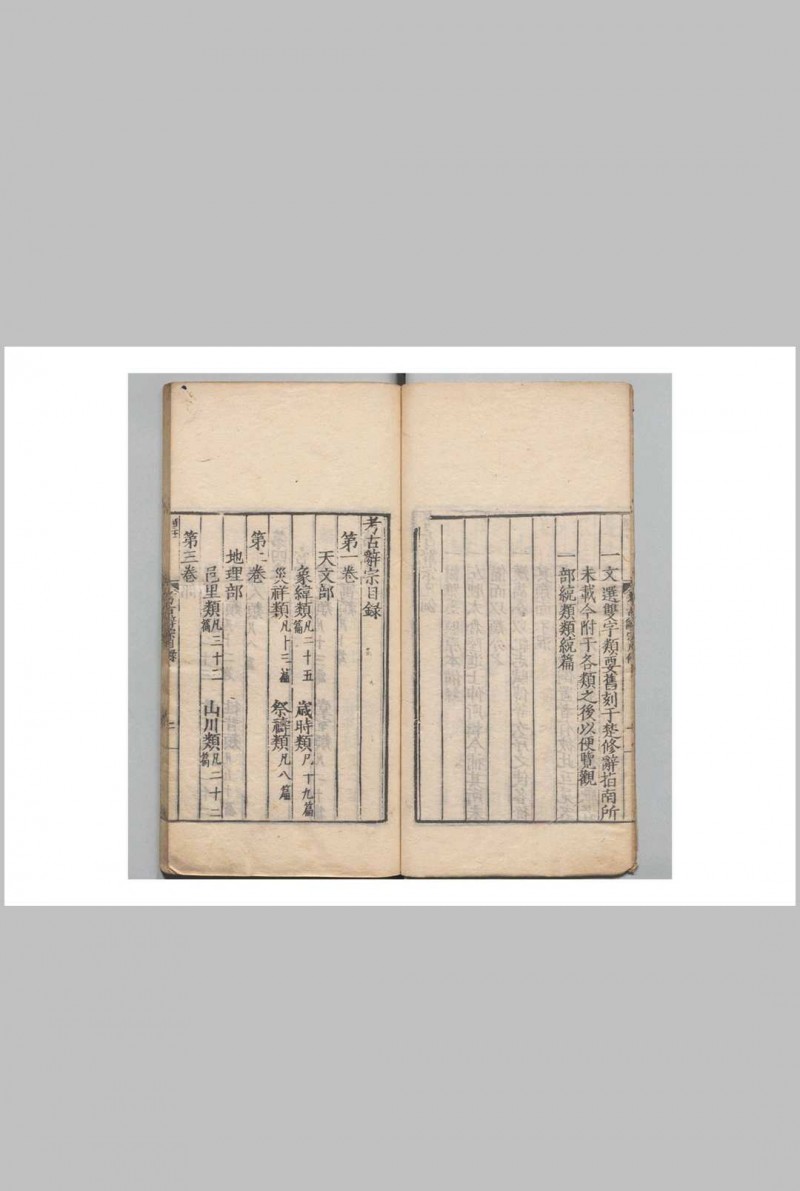 一文選雙字類要舊刻于楚修辭指南所
未載今附于各類之後以便覽觀
一部統類類統篇
考古辭宗目錄
第一卷
天文部
象緯類凡二十五篇 歲時類凡十九篇
災祥類凡十三篇 祭禱類凡八篇
第二卷
地理部
邑里類凡三十二篇 山川類凡二十二篇
第三卷